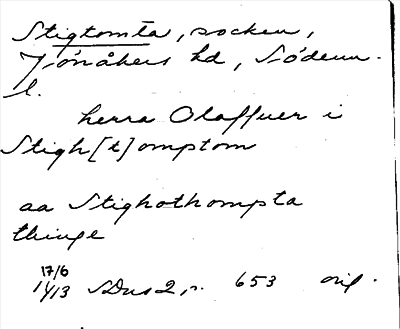 Stigtomta, socken,
Jönåkers hd, Söderm.
l.
herra Olaffuer i
Stigh[t]omptom
aa Stighothompta
thinge
17/6
1413 SDns 2, s. 653 orig.